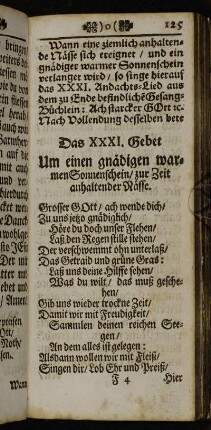 )o( 125
Wann eine ziemlich anhalten-
de Nässe sich ereignet / und ein
gnädiger warmer Sonnenschein
verlanget wird / so singe hierauf
das XXXI. Andachts-Lied aus
dem zu Ende befindlichē Gesang-
Büchlein: Ach starcker GOtt ꝛc.
Nach Vollendung desselben bete
Das XXXI. Gebet
Um einen gnädigen war-
men Sonnenschein / zur Zeit
anhaltender Nässe.
Grosser GOtt / ach wende dich /
Zu uns jetzo gnädiglich /
Höre du doch unser Flehen /
Laß den Regen stille stehen /
Der verschwemmt ohn unterlaß /
Das Getraid und grüne Gras:
Laß uns deine Hilffe sehen /
Was du wilt / das muß gesche-
hen /
Gib uns wieder trockne Zeit /
Damit wir mit Freudigkeit /
Sammlen deinen reichen See-
gen /
An dem alles ist gelegen:
Alsdann wollen wir mit Fleiß /
Singen dir / Lob Ehr und Preiß /
F 4 Hier